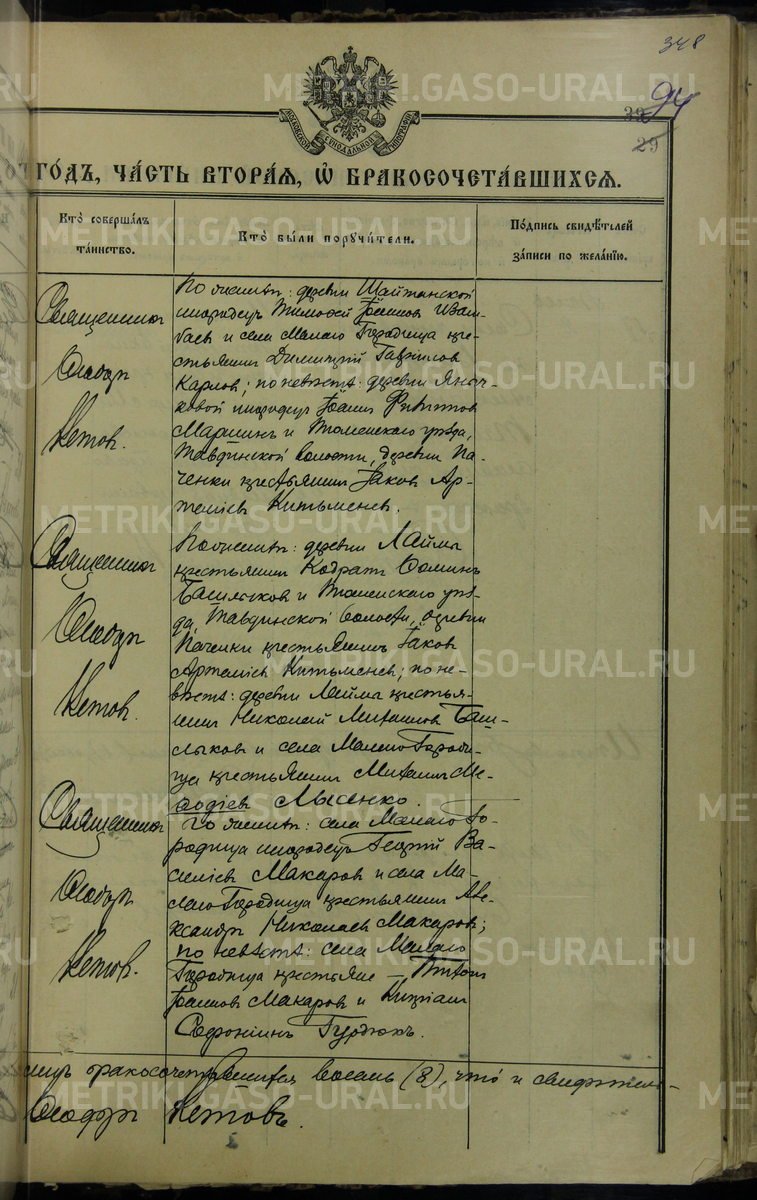 348
94
39
29
МОСКОВСКОЙ СѴНОДАЛЬНОЙ ТИПОГРАФІИ
ГОДЪ, ЧАСТЬ ВТОРАЯ, Ѽ БРАКОСОЧЕТАВШИХСЯ.
Кто совершалъ таинство.
Кто были поручители.
Подпись свидѣтелей записи по желанію.
Священникъ
Ѳеодоръ
Кетовъ.
По женихѣ: деревни Шайтанской
инородецъ Тимофей Іоаннов
и села Малаго Городища кре-
стьянинъ Димитрій Гаврилов
Карлов; по невѣстѣ: деревни Яноч-
ковой инородецъ Іоаннъ Филиппов
Маршинъ и Тюменскаго уѣзда,
Тавдинской волости, деревни Па-
ченки крестьянинъ Іаков Ар-
теміев Китьменев.
Священникъ
Ѳеодоръ
Кетов.
По женихѣ: деревни Лайма
крестьянинъ Кодратъ Фоминъ
Башлыков и Тюменскаго уѣз-
да, Тавдинской волости, деревни
Паченки крестьянинъ Іаков
Артеміев Китьменев; по не-
вѣстѣ: деревни Лайма крестья-
нинъ Николай Михаилов Баш-
лыков и села Малаго Городи-
ща крестьянинъ Михаилъ Ме-
ѳодіев Лысенко.
Священникъ
Ѳеодоръ
Кетов.
По женихѣ: села Малаго Го-
родища инородецъ Георгій Ва-
силіев Макаров и села Ма-
лаго Городища крестьянинъ Але-
ксандръ Николаев Макаров;
по невѣстѣ: села Малаго
Городища крестьяне —
Іоаннов Макаров и Кипріанъ
Софоніинъ Гурдюкъ.
бракосочетавшихся восемь (8), что и свидѣтель-
Ѳеодоръ Кетовъ.
METRIKI.GASO-URAL.RU